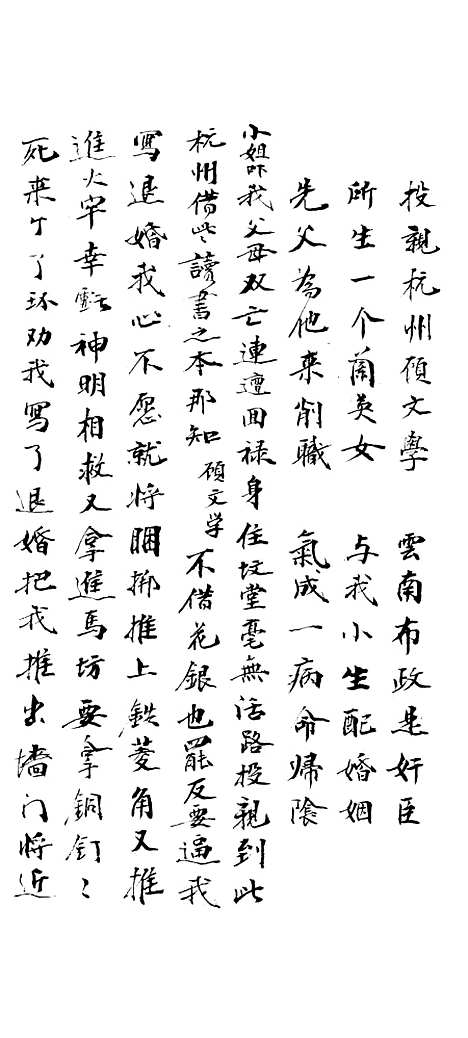 投親杭州頋文學 雲南布政是奸臣
所生一个蘭英女 与我小生配婚姻
先父為他棄削職 氣成一病命歸陰
小姐吓我父母双亡連遭囬禄身住坟堂毫無活路投親到此
杭州借些讀書之本那知頋文学不借花銀也罷反要逼我
寫退婚我心不愿就将睏挷推上鉄菱角又推
進火牢幸虧神明相救又拿進馬坊要拿銅釘〻
死来丫了环劝我寫了退婚把我推出墻门将近